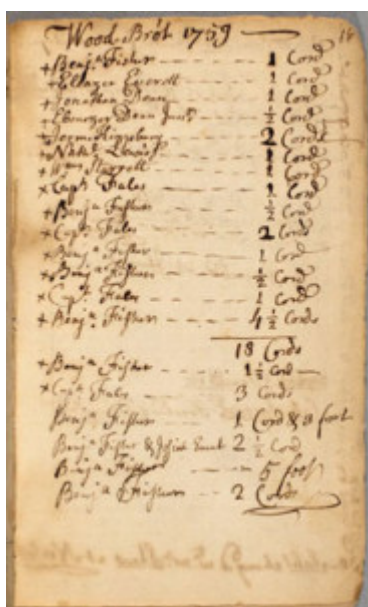 Wood Brot 1759 16
+ Benja Fisher 1 Cord
+ Eleazer Everett 1 Cord
+ Jonathan Dean 1 Cord
+ Ebenezer Dean Junr ½ Cord
+ Kingsbury 2 Cords
+ Nathl Lewis 1 Cord
+ Wm Starrett 1 Cord
× Capt Fales 1 Cord
+ Benja Fisher ½ Cord
× Capt Fales 2 Cords
× Benja Fisher 1 Cord
+ Benja Fisher ½ Cord
× Capt Fales 1 Cord
+ Benja Fisher 4 ½ Cords
18 Cords
+ Benja Fisher 1 ½ Cord
× Capt Fales 3 Cords
Benja Fisher 1 Cord & 3 foot
Benja Fisher & 2 ½ Cord
Benja Fisher 5 foot
Benja Fisher 2 Cords